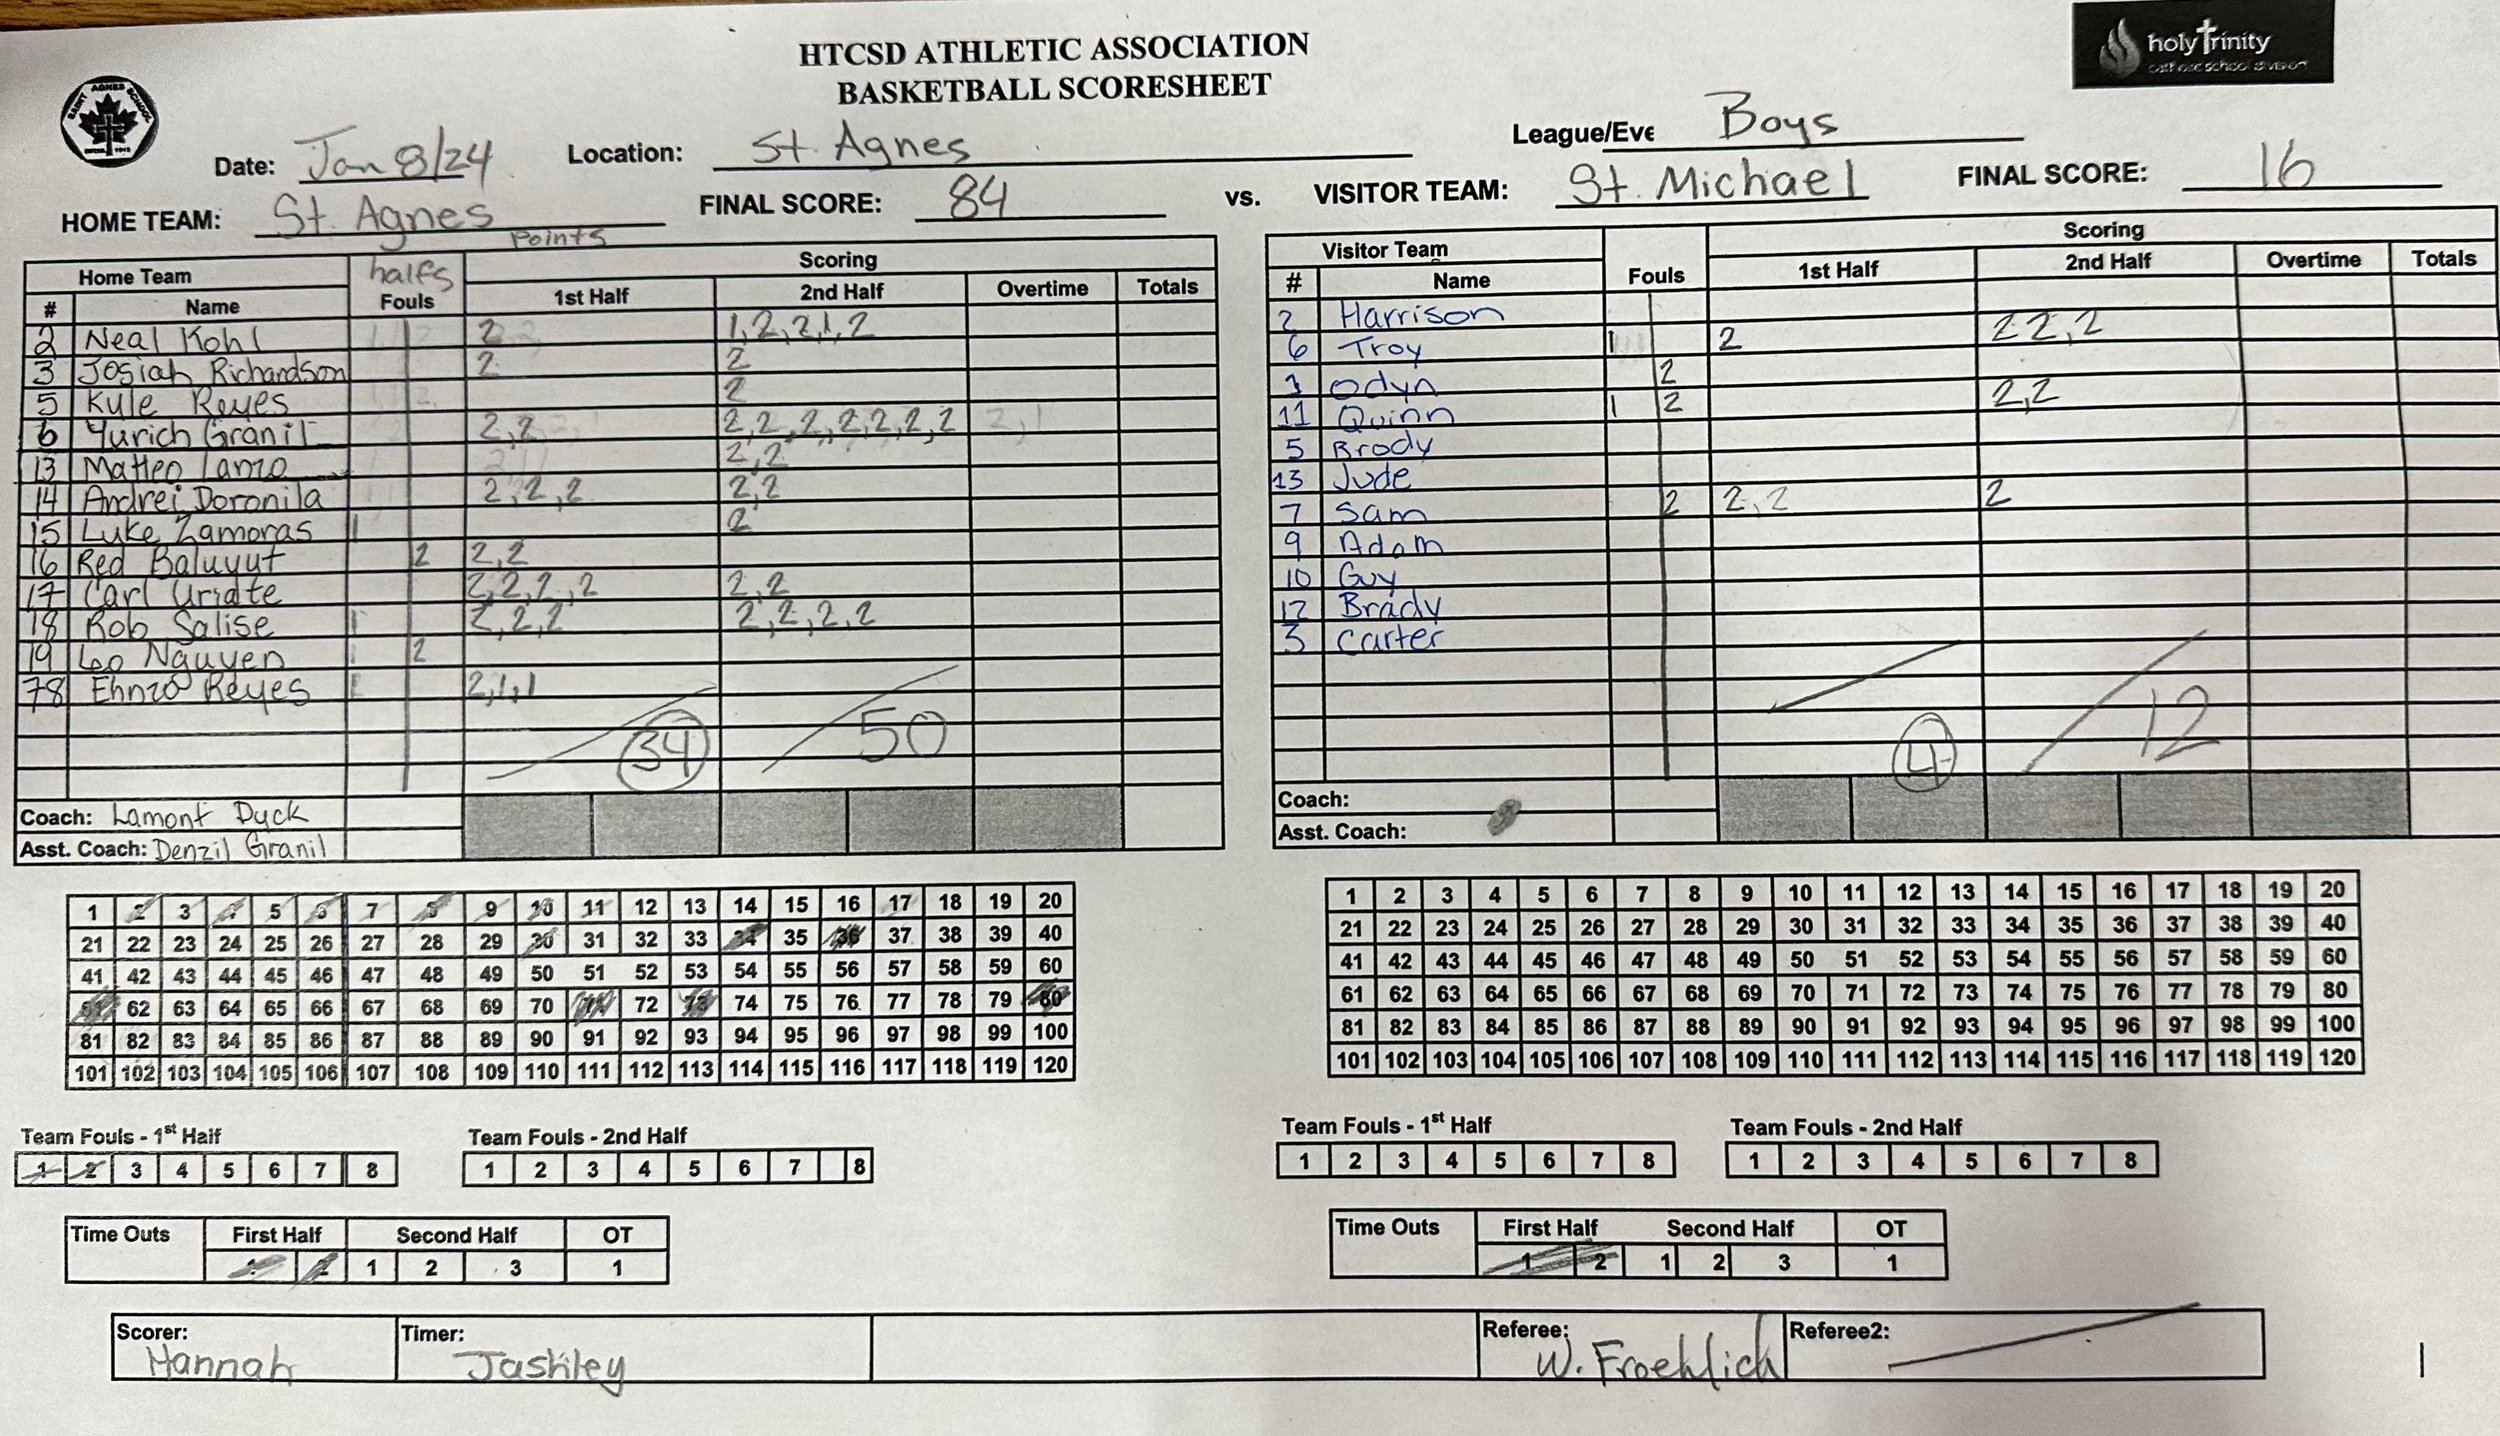 HTCSD ATHLETIC ASSOCIATION
BASKETBALL SCORESHEET
SAINT AGNES SCHOOL
holy trinity
catholic school division
Date: Jan 8/24 Location: St. Agnes League/Eve Boys
HOME TEAM: St. Agnes FINAL SCORE: 84 vs. VISITOR TEAM: St. Michael FINAL SCORE: 16
points
Home Team halfs Scoring
# Name Fouls 1st Half 2nd Half Overtime Totals
2 Neal Kohl 2 1,2,2,1,2
3 Josiah Richardson 2 2
5 Kyle Reyes 2
6 Yurich Granil 2,2 2,2,2,2,2,2,2
13 Matteo Lanzo 2,2
14 Andrei Doronila 2,2,2 2,2
15 Luke Zamoras 1 2
16 Red Baluyut 2 2,2
17 Carl Uriate 2,2,2,2 2,2
18 Rob Salise 1 2,2,2 2,2,2,2
19 Leo Nguyen 1 2
78 Ehnzo Reyes 1 2,1,1
34 50
Coach: Lamont Dyck
Asst. Coach: Denzil Granil
Visitor Team Scoring
# Name Fouls 1st Half 2nd Half Overtime Totals
2 Harrison
6 Troy 1 2 2 2,2
1 Odyn 2
11 Quinn 1 2 2,2
5 Brody
13 Jude
7 Sam 2 2,2 2
9 Adam
10 Guy
12 Brady
3 Carter
4 12
Coach:
Asst. Coach:
1 2 3 4 5 6 7 8 9 10 11 12 13 14 15 16 17 18 19 20
21 22 23 24 25 26 27 28 29 30 31 32 33 34 35 36 37 38 39 40
41 42 43 44 45 46 47 48 49 50 51 52 53 54 55 56 57 58 59 60
61 62 63 64 65 66 67 68 69 70 71 72 73 74 75 76 77 78 79 80
81 82 83 84 85 86 87 88 89 90 91 92 93 94 95 96 97 98 99 100
101 102 103 104 105 106 107 108 109 110 111 112 113 114 115 116 117 118 119 120
1 2 3 4 5 6 7 8 9 10 11 12 13 14 15 16 17 18 19 20
21 22 23 24 25 26 27 28 29 30 31 32 33 34 35 36 37 38 39 40
41 42 43 44 45 46 47 48 49 50 51 52 53 54 55 56 57 58 59 60
61 62 63 64 65 66 67 68 69 70 71 72 73 74 75 76 77 78 79 80
81 82 83 84 85 86 87 88 89 90 91 92 93 94 95 96 97 98 99 100
101 102 103 104 105 106 107 108 109 110 111 112 113 114 115 116 117 118 119 120
Team Fouls - 1st Half Team Fouls - 2nd Half
1 2 3 4 5 6 7 8 1 2 3 4 5 6 7 8
Team Fouls - 1st Half Team Fouls - 2nd Half
1 2 3 4 5 6 7 8 1 2 3 4 5 6 7 8
Time Outs First Half Second Half OT
1 2 1 2 3 1
Time Outs First Half Second Half OT
1 2 1 2 3 1
Scorer: Timer: Referee: Referee2:
Hannah Jashley W. Froehlich